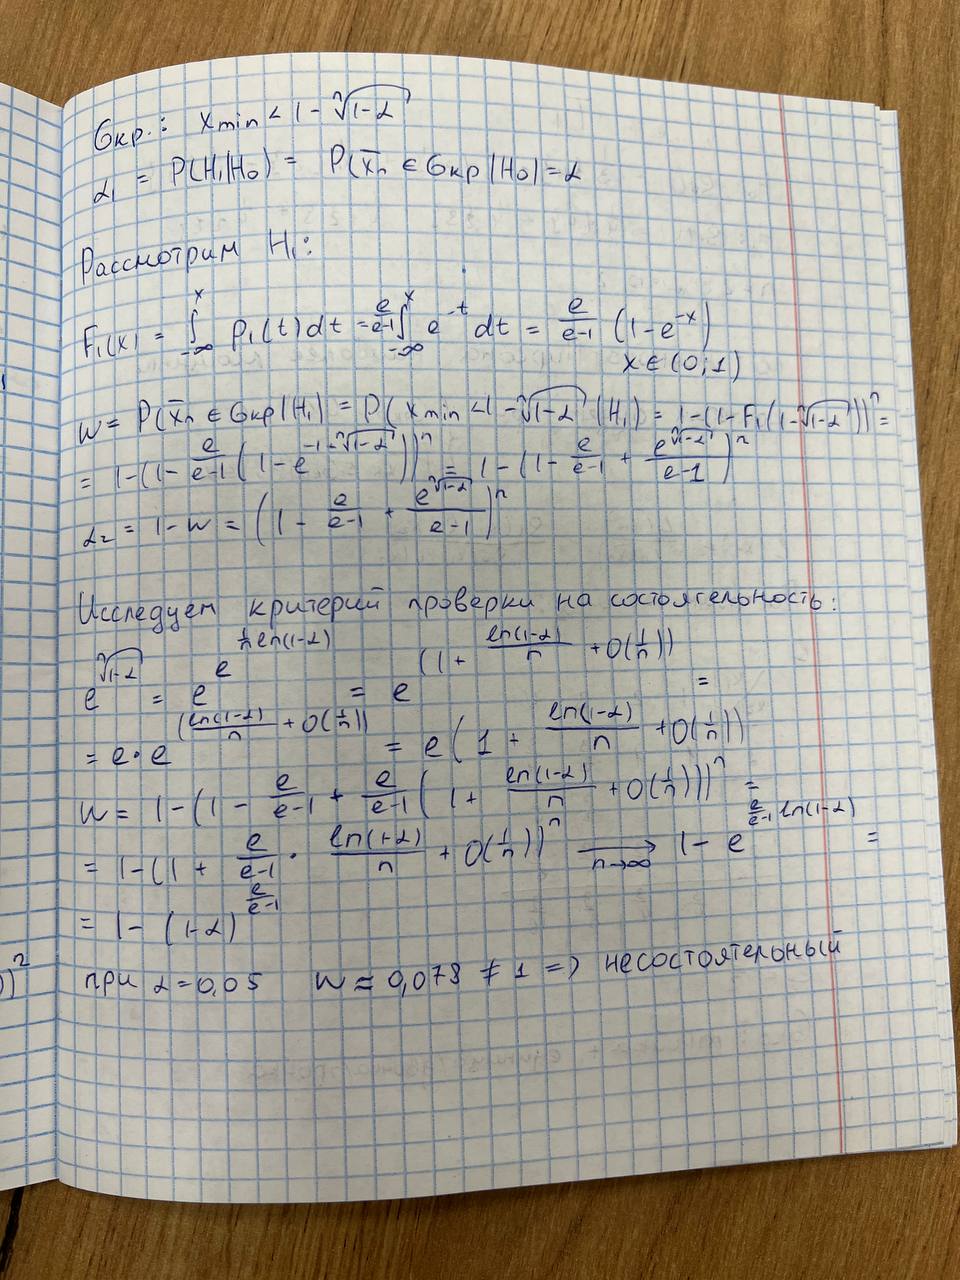 Gкр.: xmin < 1 - ⁿ√(1-α)
α₁ = P(H₁|H₀) = P(x̄n ∈ Gкр | H₀) = α
Рассмотрим H₁:
F₁(x) = ∫_{-∞}^{x} p₁(t)dt = e/(e-1) ∫_{-∞}^{x} e^{-t} dt = e/(e-1) (1-e^{-x})
x ∈ (0;1)
W = P(x̄n ∈ Gкр | H₁) = P(xmin < 1 - ⁿ√(1-α) | H₁) = 1-(1-F₁(1-ⁿ√(1-α)))ⁿ =
= 1-(1- e/(e-1) (1-e^{-1-ⁿ√(1-α)}))ⁿ = 1-(1- e/(e-1) + e^{ⁿ√(1-α)}/(e-1))ⁿ
α₂ = 1-W = (1 - e/(e-1) + e^{ⁿ√(1-α)}/(e-1))ⁿ
Исследуем критерий проверки на состоятельность:
e^{ⁿ√(1-α)} = e^{e^{1/n ln(1-α)}} = e^{(1 + ln(1-α)/n + O(1/n))} =
= e·e^{(ln(1-α)/n + O(1/n))} = e(1 + ln(1-α)/n + O(1/n))
W = 1-(1 - e/(e-1) + e/(e-1) (1 + ln(1-α)/n + O(1/n)))ⁿ =
= 1-(1 + e/(e-1) · ln(1-α)/n + O(1/n))ⁿ →_{n→∞} 1 - e^{e/(e-1) ln(1-α)} =
= 1-(1-α)^{e/(e-1)}
при α=0,05 W ≈ 0,078 ≠ 1 => несостоятельный